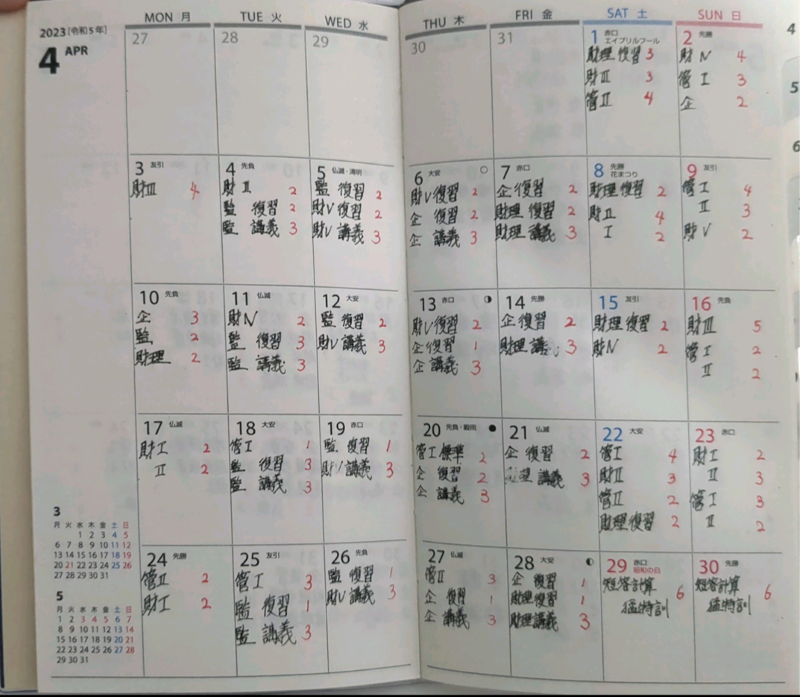 2023 [令和5年]
4 APR
MON 月 TUE 火 WED 水 THU 木 FRI 金 SAT 土 SUN 日
27 28 29 30 31
1 赤口
エイプリルフール
財理復習 3
財II 3
管II 4
2 先勝
財IV 4
管I 3
企 2
3 友引
財III 4
4 先負
財II 2
監 復習 2
監 講義 3
5 仏滅・清明
監 復習 2
財V 復習 2
財V 講義 3
6 大安
財V復習 2
企 復習 2
企 講義 3
7 赤口
企復習 2
財理復習 2
財理講義 3
8 先勝
花まつり
財理復習 2
財II 4
I 2
9 友引
管I 4
II 3
財V 2
10 先負
企 3
監 2
財理 2
11 仏滅
財IV 2
監 復習 3
監 講義 3
12 大安
監 復習 2
財V 講義 3
13 赤口
財V復習 2
企復習 1
企 講義 3
14 先勝
企復習 2
財理講義 3
15 友引
財理復習 2
財IV 2
16 先負
財III 5
管I 2
II 2
17 仏滅
財I 2
II 2
18 大安
管I 1
監 復習 3
監 講義 3
19 赤口
監 復習 1
財V 講義 3
20 先負・穀雨
管I 標準 2
企 復習 2
企 講義 3
21 仏滅
企 復習 2
理 講義 3
22 大安
管I 4
財II 3
管II 2
財理復習 2
23 赤口
財I 2
II 3
管I 3
II 2
24 先勝
管II 2
財I 2
25 友引
管I 3
監 復習 1
監 講義 3
26 先負
監 復習 1
財V 講義 3
27 仏滅
管II 3
企 復習 1
企 講義 3
28 大安
企 復習 1
財理復習 1
財理講義 3
29 赤口
昭和の日
短答計算 6
猛特訓
30 先勝
短答計算 6
猛特訓
3
月 火 水 木 金 土 日
1 2 3 4 5
6 7 8 9 10 11 12
13 14 15 16 17 18 19
20 21 22 23 24 25 26
27 28 29 30 31
5
月 火 水 木 金 土 日
1 2 3 4 5 6 7
8 9 10 11 12 13 14
15 16 17 18 19 20 21
22 23 24 25 26 27 28
29 30 31
4
5
6